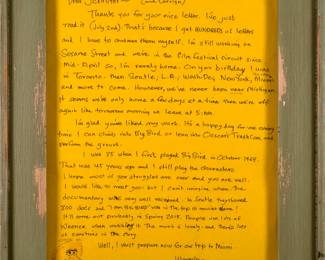 Dear Jennifer (and Carolyn)
Thanks you for your nice letter. I've just
read it (July 2nd). That's because I get HUNDREDS of letters
and I have to answer them myself. I'm still working on
Sesame Street and we're in the film festival circuit since
Mid-April so, I'm rarely home. On your birthday I was
in Toronto. Then Seattle, L.A., Wash. Dc, New York, Miami
and more to come. However, we've never been near Michigan
It seems we're only home a few days at a time then we're off
again like tomorrow morning we leave at 5 AM.
I'm glad you've liked my work. It's a happy day for me every
time I can climb into Big Bird or lean into Oscar's Trash Can and
perform the grouch.
I was 35 when I first played Big Bird in October 1969.
That was 45 years ago and I still play the characters
I hope most of your struggles are over and you are well.
I would like to meet you but I can't imagine when. The
documentary was very well received. In Seattle they showed
300 docs and "I am Big Bird" was in the top 10 movies there!
It'll come out probably in Spring 2015. People use lots of
Kleenex when watching it. The music is lovely and there's lots
of emotions in the story.
Well, I must prepare now for our trip to Miami